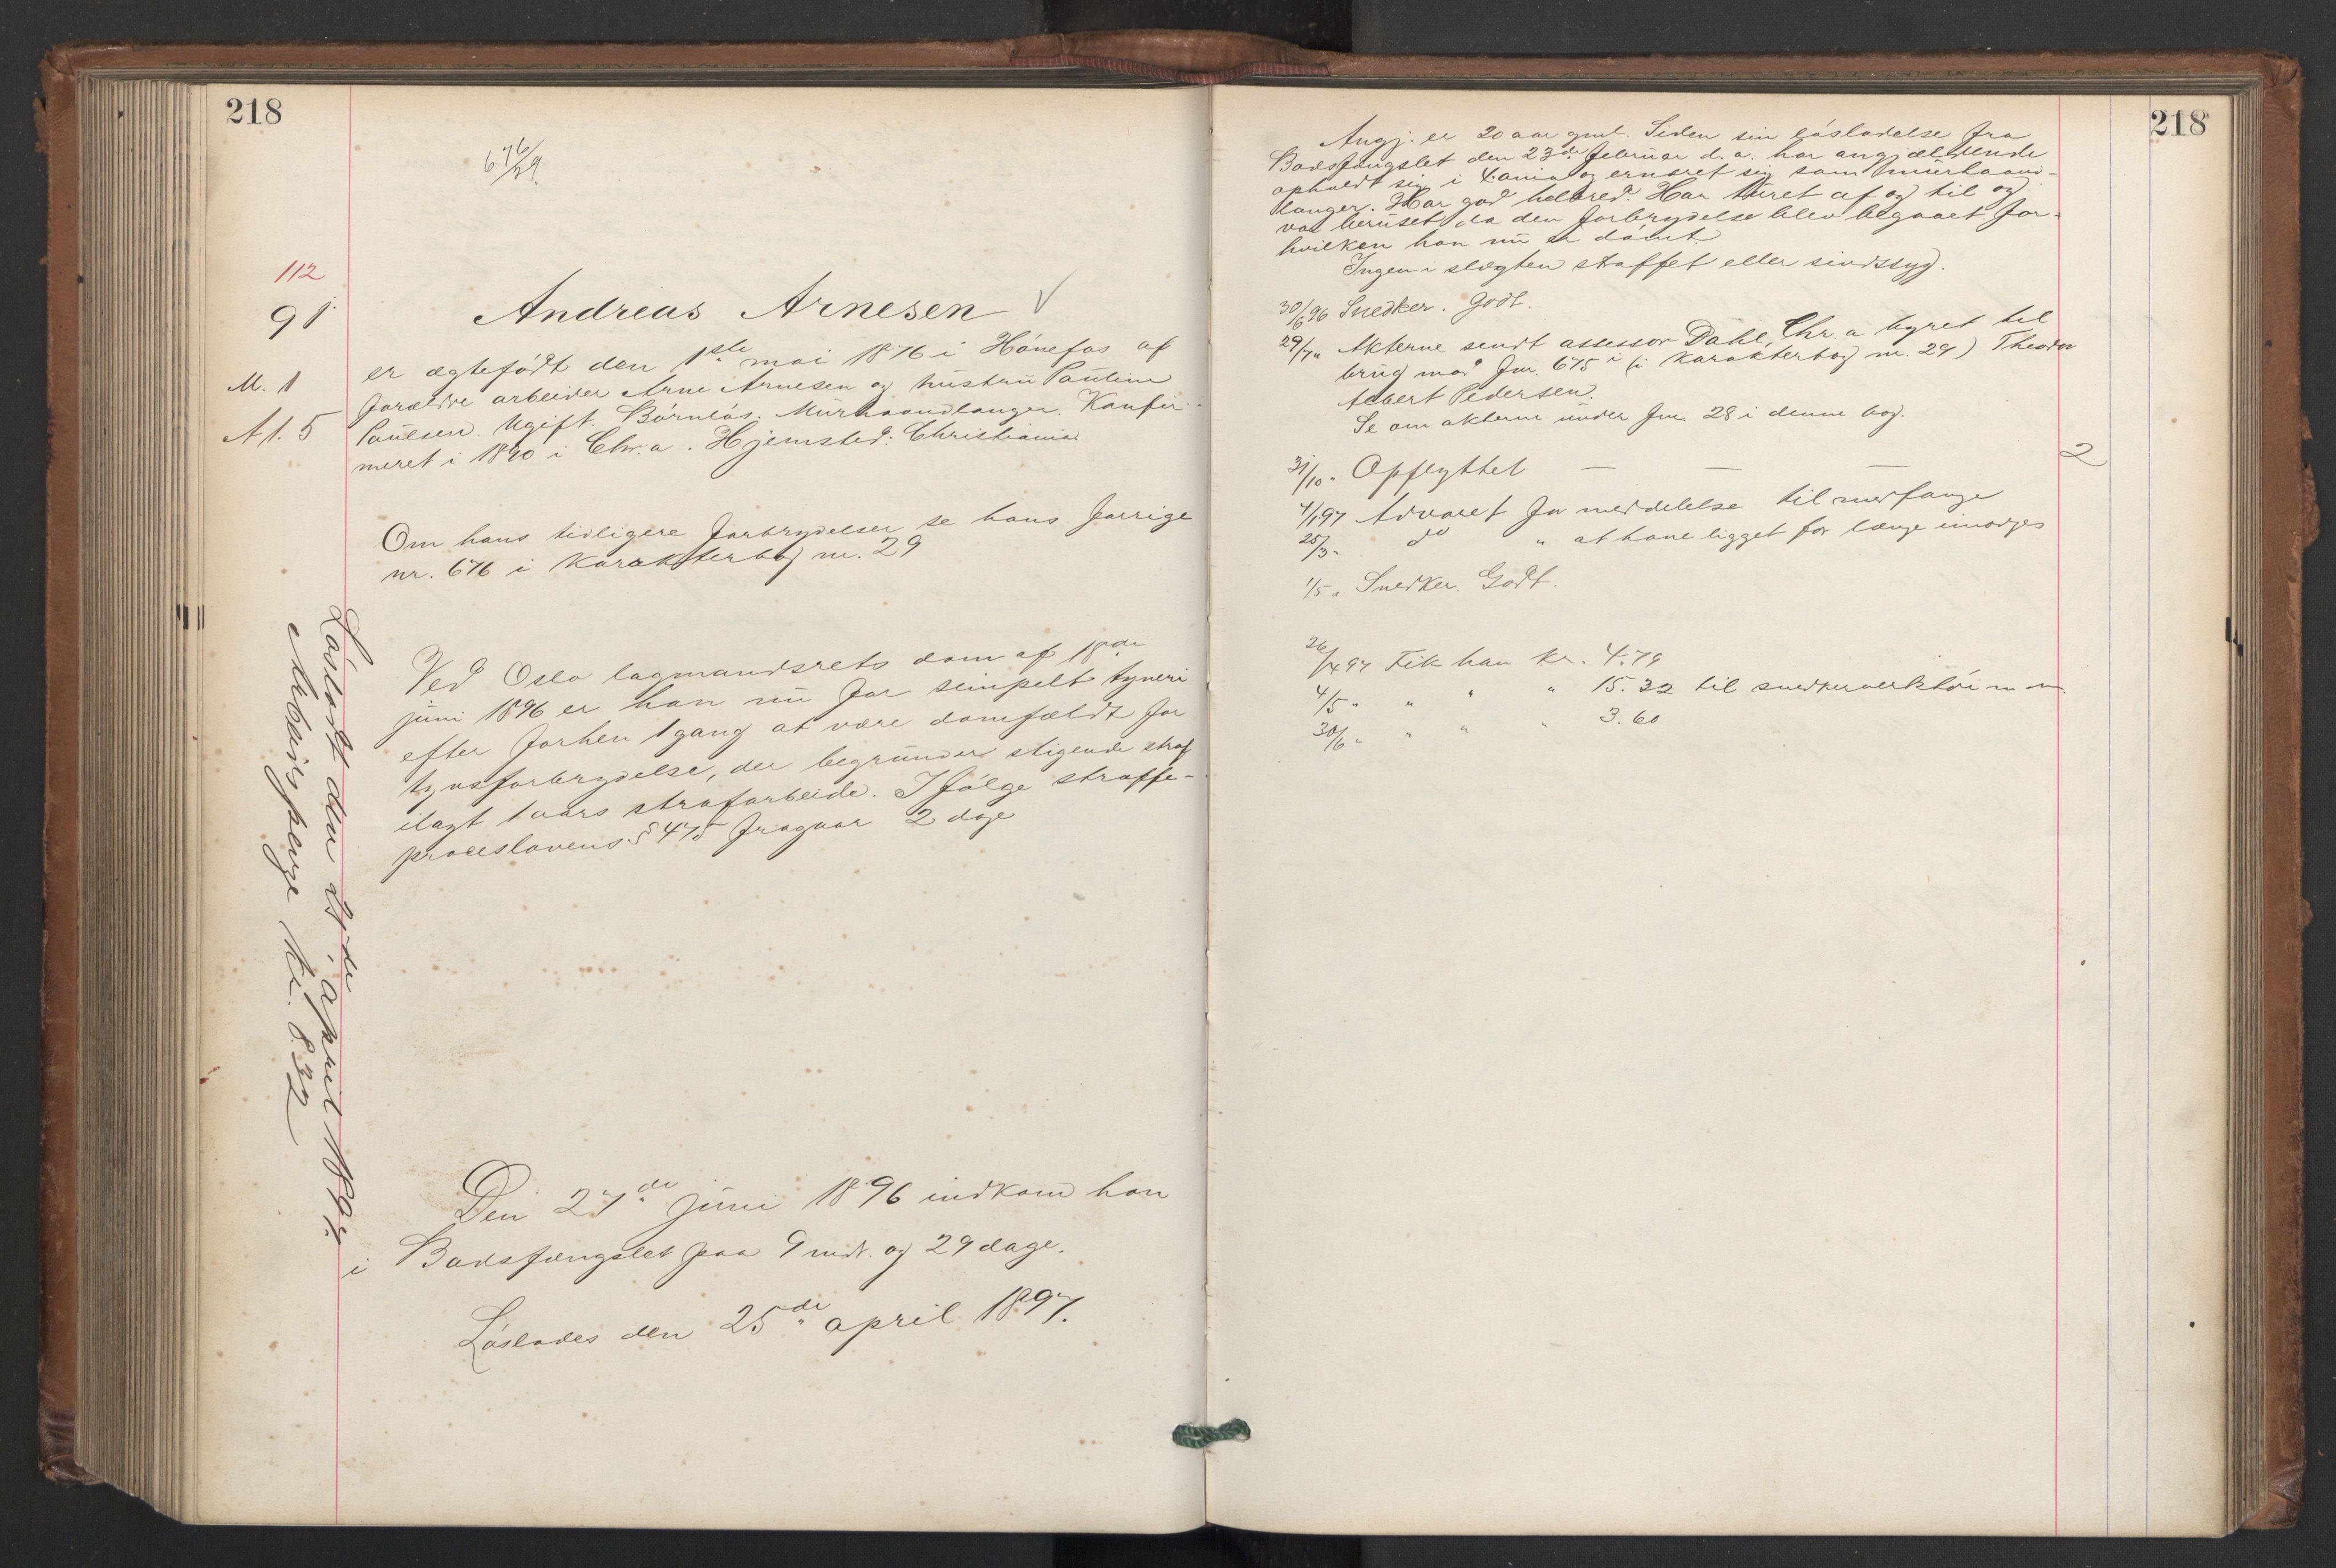 218
676/29
112
91
Andreas Arnesen
M. 1
A f. 5
er ægtefødt den 1ste mai 1876 i Hønefos af
forældre arbeider Arne Arnesen og hustru Pauline
Paulsen. Ugift. Barnløs. Murhaandlanger. Konfir-
meret i 1890 i Chr.a. Hjemsted: Christiania
Om hans tidligere forbrydelser se hans forrige
nr. 676 i Karakterbog nr. 29
Ved Oslo lagmandsrets dom af 18de
juni 1896 er han nu for simpelt tyveri
efter forhen 1 gang at være domfældt for
tyvsforbrydelse, der begrunder stigende straf
ilagt 1 aars strafarbeide. I følge straffe-
proceslovens § 475 fragaar 2 dage
Den 27de juni 1896 indkom han
i Bodsfængslet paa 9 mdr. og 29 dage.
Løslades den 25de april 1897.
Løsladt den 25de april 1897.
Arbeidspenge kr. 8.32
218
Angj. er 20 aar gml. Siden sin løsladelse fra
Bodsfængslet den 23de februar d. a. har angjældende
opholdt sig i X.ania og ernæret sig som murhaand-
langer. Har god helbred. Har turet af og til og
var beruset, da den forbrydelse blev begaaet for
hvilken han nu er dømt.
Ingen i slægten straffet eller sindssyg.
30/6 96 Snedker. Godt.
29/7 " Akterne sendt assessor Dahl, Chr.a byret til
brug mod fm. 675 i (i Karakterbog nr. 29) Theodor
Albert Pedersen.
Se om akterne under fm. 28 i denne bog.
31/10 " Opflyttet — — — 2
4/1 97 Advaret for meddelelse til medfange
25/3 " do " at have ligget for længe imorges
1/5 " Snedker. Godt.
26/4 97 Fik han kr. 4.79
4/5 " " " " 15.32 til snedkerverktøi m m.
30/6 " " " " 3.60